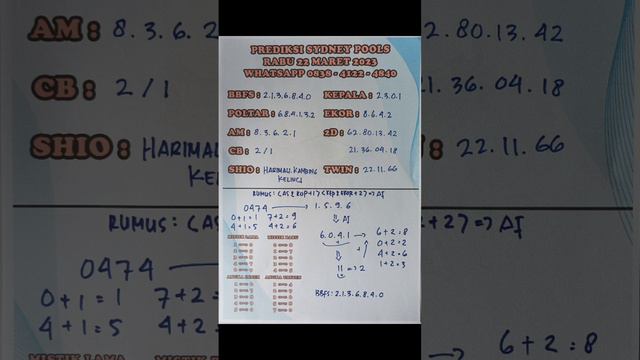 PREDIKSI SYDNEY POOLS
RABU 22 MARET 2023
WHATSAPP 0838 - 4122 - 4840
BBFS : 2.1.3.6.8.4.0 KEPALA : 2.3.0.1
POLTAR : 6.8.4.1.3.2 EKOR : 8.6.4.2
AM : 8.3.6.2.1 2D : 62.80.13.42
CB : 2 / 1 21.36.04.18
SHIO : HARIMAU. KAMBING TWIN : 22.11.66
KELINCI
0474 → 1.5.9.6
0+1=1 7+2=9 ⇓ AI
4+1=5 4+2=6
6.0.4.1 → 6+2=8
0+2=2
4+2=6
1+2=3
11 ⇒ 2
MISTIK LAMA MISTIK BARU
BBFS : 2.1.3.6.8.4.0
AM : 8.3.6.2
2.80.13.42
CB : 2 / 1
1.36.04.18
SHIO : HARIMAU
22.11.66
KE
RUMUS : (AS
+2) ⇒ AI
0474
0+1=1 7+2=
4+1=5 4+2=
6+2=8
MISTIK LAMA